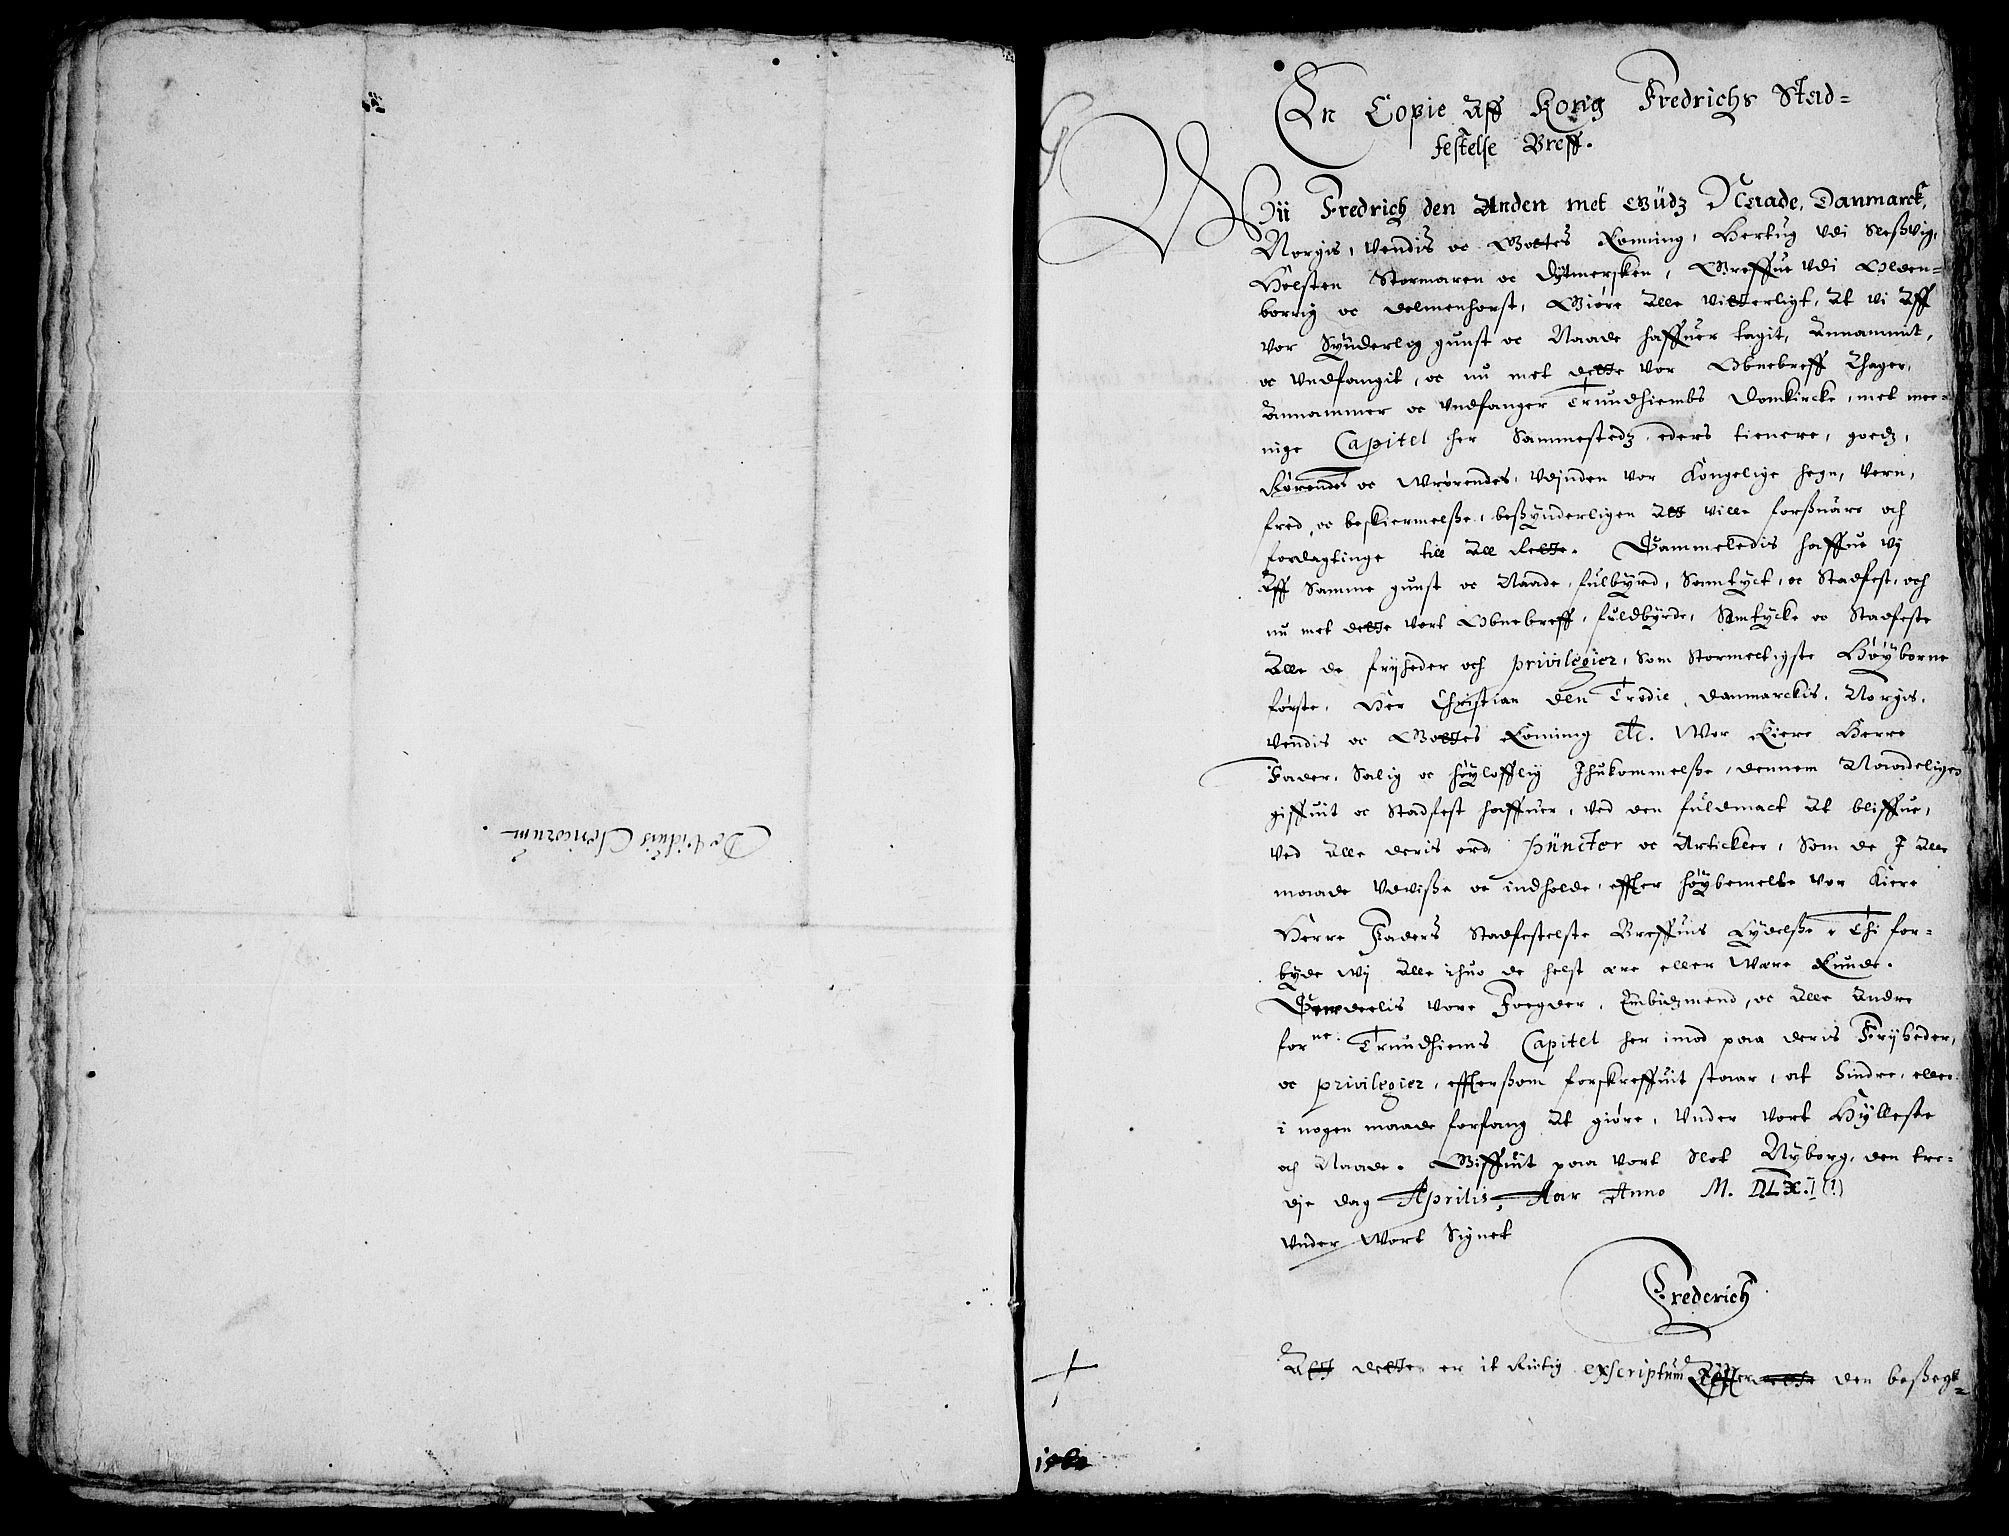 De Viduis Clericorum.
En Copie Aff Konig Fredrichs Stad=
festelse Breff.
Wii Fredrich den Anden met Gudz Naade, Danmarck,
Norgis, Vendis oc Gottes Konning, Hertug vdi Sleßvig,
Holsten Stormaren oc Dytmersken, Greffue vdi Olden=
borrig oc Delmenhorst, Giøre Alle Vitterligt, At vi Aff
vor Synderlig gunst oc Naade haffuer tagit, Annammit,
oc vndfangit, oc nu met dette vor Obnebreff Thager,
Annammer oc vndfanger Trundhiembs Domkircke, met mee=
nige Capitel her Sammestedz eders tienere, goedz,
Rørendes oc Wrørendes, vdjnden vor Kongelige hegn, Vern,
fred, oc beskiermelße, beßynderligen Alt ville forßuare och
fordagtinge till All Rette. Sammeledis haffue Vij
Aff Samme gunst oc Naade, fulbyrd, Samtyct, oc Stadfest, och
nu met dette vort Obnebreff, fuldbyrde, Samtycke oc Stadfeste
Alle de fryheder och privilegier, Som Stormectigste Høyborne
første, Her Christian den Tredie, Danmarckis, Norgis,
Vendis oc Gottes Konning etc. Wor Kiere Herre
Fader, Salig oc høylofflig Ihukommelße, dennem Naadeligen
giffuit oc Stadfest haffuer, ved den fuldmact At bliffue,
Ved Alle deris ord, Puncter oc Artickler, Som de I Alle
maade vdviße oc indholde, effter høybemelte vor Kiere
Herre Faders Stadfestelste Breffuis Lydelße. Thi for=
byde Wij Alle ihuo de helst ære eller Være Kunde.
Serdeelis vore Foegder, Embidzmend, oc Alle Andre
forne. Trundhiems Capitel her imod paa deris Fryheder,
oc privilegier, effterßom forskreffuit staar, at hindre, eller
i nogen maade forfang At giøre, Vnder vort Hylleste
och Naade. Giffuit paa vort Slot Nyborg, den tre=
die dag Aprilis, Aar Anno M. DLX.I (!)
Vnder Wort Signet
Frederich
Att dette er it Rictig exscriptum Effter den beßegl=